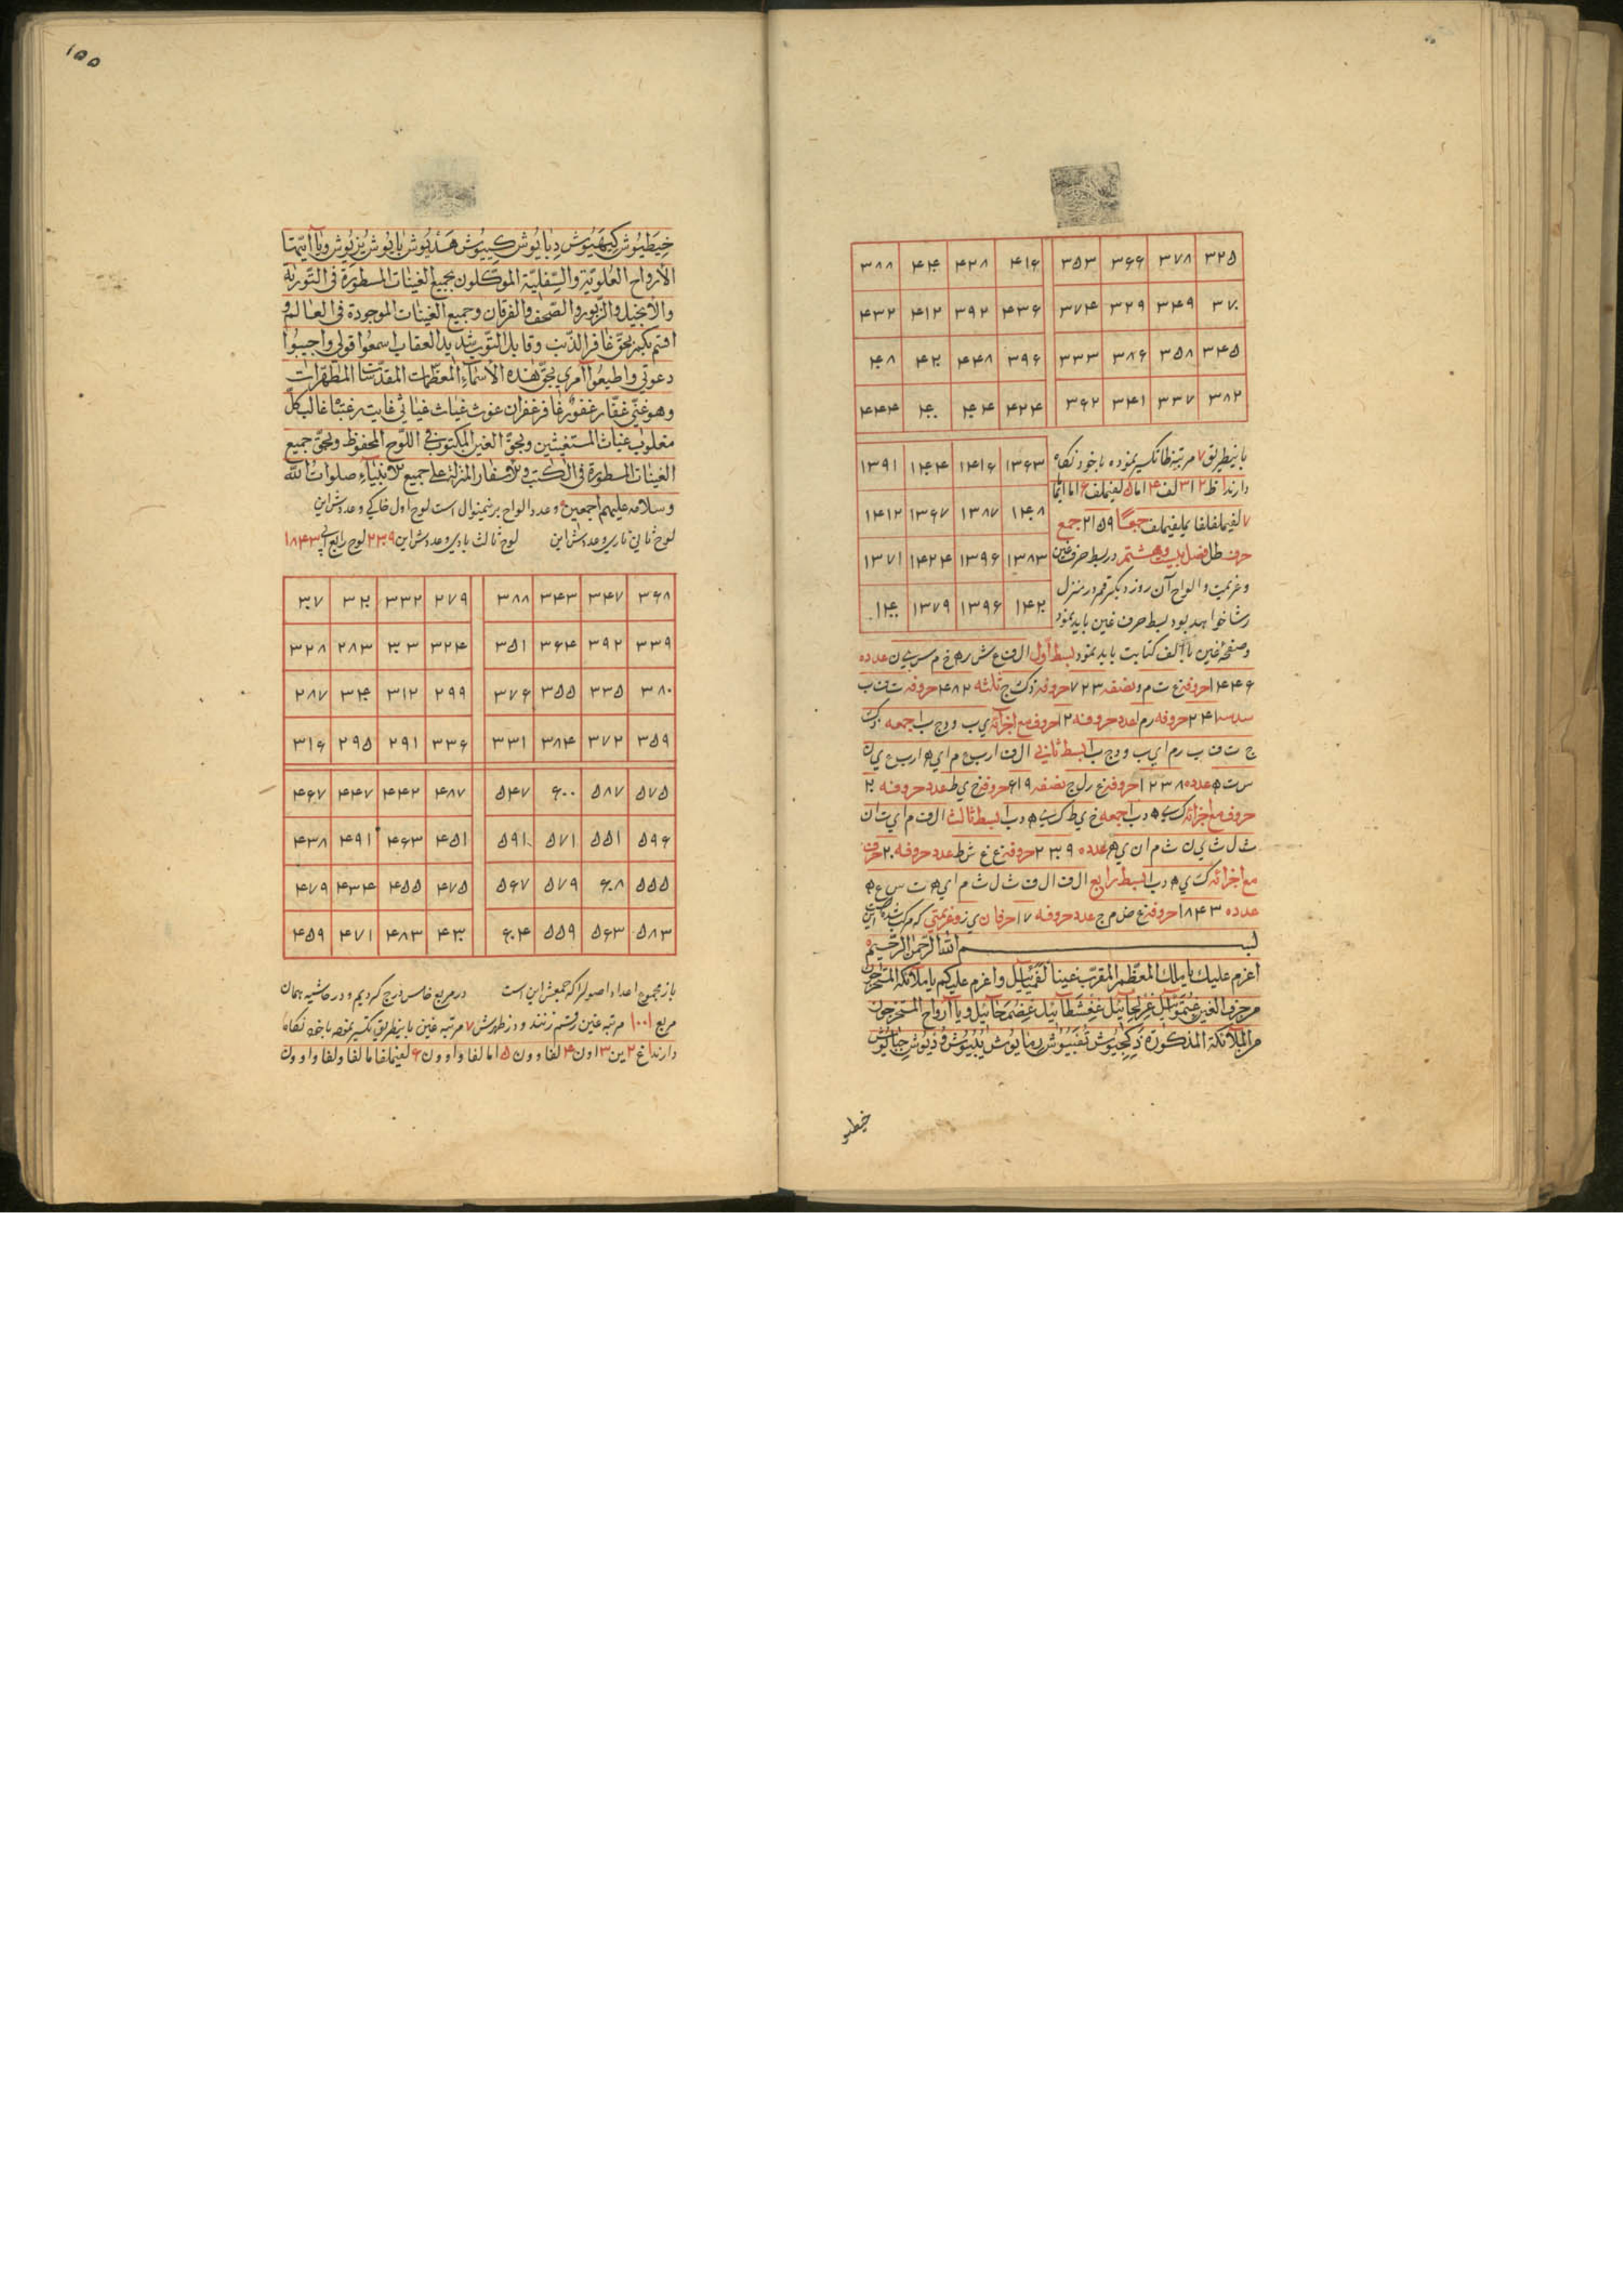 ۳۸۸ ۴۰۴ ۴۲۸ ۴۱۶ ۳۵۳ ۳۶۶ ۳۷۸ ۳۲۵
۴۳۲ ۴۱۲ ۳۹۲ ۴۳۶ ۳۷۴ ۳۲۹ ۳۴۹ ۳۷۰
۴۰۸ ۴۲۰ ۴۴۸ ۳۹۶ ۳۳۳ ۳۸۶ ۳۵۸ ۳۴۵
۴۴۴ ۴۰۰ ۴۰۴ ۴۲۴ ۳۶۲ ۳۴۱ ۳۳۷ ۳۸۲
۱۳۹۱ ۱۴۰۴ ۱۴۱۶ ۱۳۶۳
۱۴۱۲ ۱۳۶۷ ۱۳۸۷ ۱۴۰۸
۱۳۷۱ ۱۴۲۴ ۱۳۹۶ ۱۳۸۳
۱۴۰۰ ۱۳۷۹ ۱۳۹۶ ۱۴۲۰
باینطریق ۷ مرتبه ظا تکسیر نموده با خود نکاه
دارند
جمعا ۲۱۵۹ جمع
حرف ظا فصل بیست و هشتم در بسط حرف غین
و عزیمت و الواح آن روز دیکر قمر در منزل
رشا خواهد بود بسط حرف غین باید نمود
و صفحهٔ غین با الف کتابت باید نمود بسط اول ال ف ع ش ر ه خ م س ی ن عدده
۱۴۴۶ حروفه غ ت م و نصفه ۷۲۳ حروفه ذ ک ج ثلثه ۴۸۲ حروفه ت ف ب
سدسه ۲۴۱ حروفه ر م ا عدد حروفه ۱۲ حروف مع اجزائه ی ب و د ج ب ا جمعه ذ ک
ج ت ف ب ر م ا ی ب و د ج ب ا بسط ثانی ال ف ا ر ب ع م ا ی ه ا ر ب ع ی ن
س ت ه عدده ۱۲۳۸ حروفه غ ر ل ح نصفه ۶۱۹ حروفه خ ی ط عدد حروفه ۲۰
حروف مع اجزائه ک ی ه د ب ا جمعه خ ی ط ک ی ه د ب ا بسط ثالث ال ف م ا ی ت ا ن
ث ل ث ی ن ث م ا ن ی ه عدده ۲۳۰۹ حروفه غ غ ش ط عدد حروفه ۲۰ حرف
مع اجزائه ک ی ه د ب ا بسط رابع ال ف ال ف ث ل ث م ا ی ه ت س ع ه
عدده ۱۸۴۳ حروفه غ ض م ج عدد حروفه ۱۷ حرفان ی ز و عزیمتی که مرکب شده اینست
بسم الله الرحمن الرحیم
اعزم علیك یا ملك المعظم المقرب عینا لقمیائیل و اعزم علیکم یا ملائکة المستخرجون
من حرف الغین و یا ارواح المستخرجون
من الملائکة المذکورة
خیطیو
۱۵۵
الارواح العلویة و السفلیة الموکلون بجمیع الغینات المسطورة فی التوریة
والانجیل والزبور والصحف والفرقان وجمیع الغینات الموجودة فی العالم و
اقسم بکم بحق غافر الذنب وقابل التوب شدید العقاب اسمعوا قولی واجیبوا
دعوتی واطیعوا امری بحق هذه الاسماء المعظمات المقدسات المطهرات
وهو غنی غفار غفور غافر غفران غوث غیاث غیاثی غایت رغبتنا غالب کل
مغلوب غیاث المستغیثین وبحق الغین المکتوب فی اللوح المحفوظ وبحق جمیع
الغینات المسطورة فی الکتب والاسفار المنزلة علی جمیع الانبیاء صلوات الله
وسلامه علیهم اجمعین و عدد الواح برینمنوال است لوح اول خاکی و عددش این
لوح ثانی ناری و عددش این لوح ثالث بادی و عددش این ۲۳۰۹ لوح رابع آبی ۱۸۴۳
۳۰۷ ۳۲۰ ۳۳۲ ۲۷۹ ۳۸۸ ۳۴۳ ۳۴۷ ۳۶۸
۳۲۸ ۲۸۳ ۳۰۳ ۳۲۴ ۳۵۱ ۳۶۴ ۳۹۲ ۳۳۹
۲۸۷ ۳۴۰ ۳۱۲ ۲۹۹ ۳۷۶ ۳۵۵ ۳۳۵ ۳۸۰
۳۱۶ ۲۹۵ ۲۹۱ ۳۳۶ ۳۳۱ ۳۸۴ ۳۷۲ ۳۵۹
۴۶۷ ۴۴۷ ۴۴۲ ۴۸۷ ۵۴۷ ۶۰۰ ۵۸۷ ۵۷۵
۴۳۸ ۴۹۱ ۴۶۳ ۴۵۱ ۵۹۱ ۵۷۱ ۵۵۱ ۵۹۶
۴۷۹ ۴۳۴ ۴۵۵ ۴۷۵ ۵۶۷ ۵۷۹ ۶۰۸ ۵۵۵
۴۵۹ ۴۷۱ ۴۸۳ ۴۳۰ ۶۰۴ ۵۵۹ ۵۶۳ ۵۸۳
باز مجموع اعداد اصول را که جمیعش این است در مربع خامس درج کردیم و در حاشیه همان
مربع ۱۰۰۱ مرتبه غین رقم زنند و در ظهرش ۷ مرتبه غین باینطریق تکسیر نموده با خود نکاه
دارند